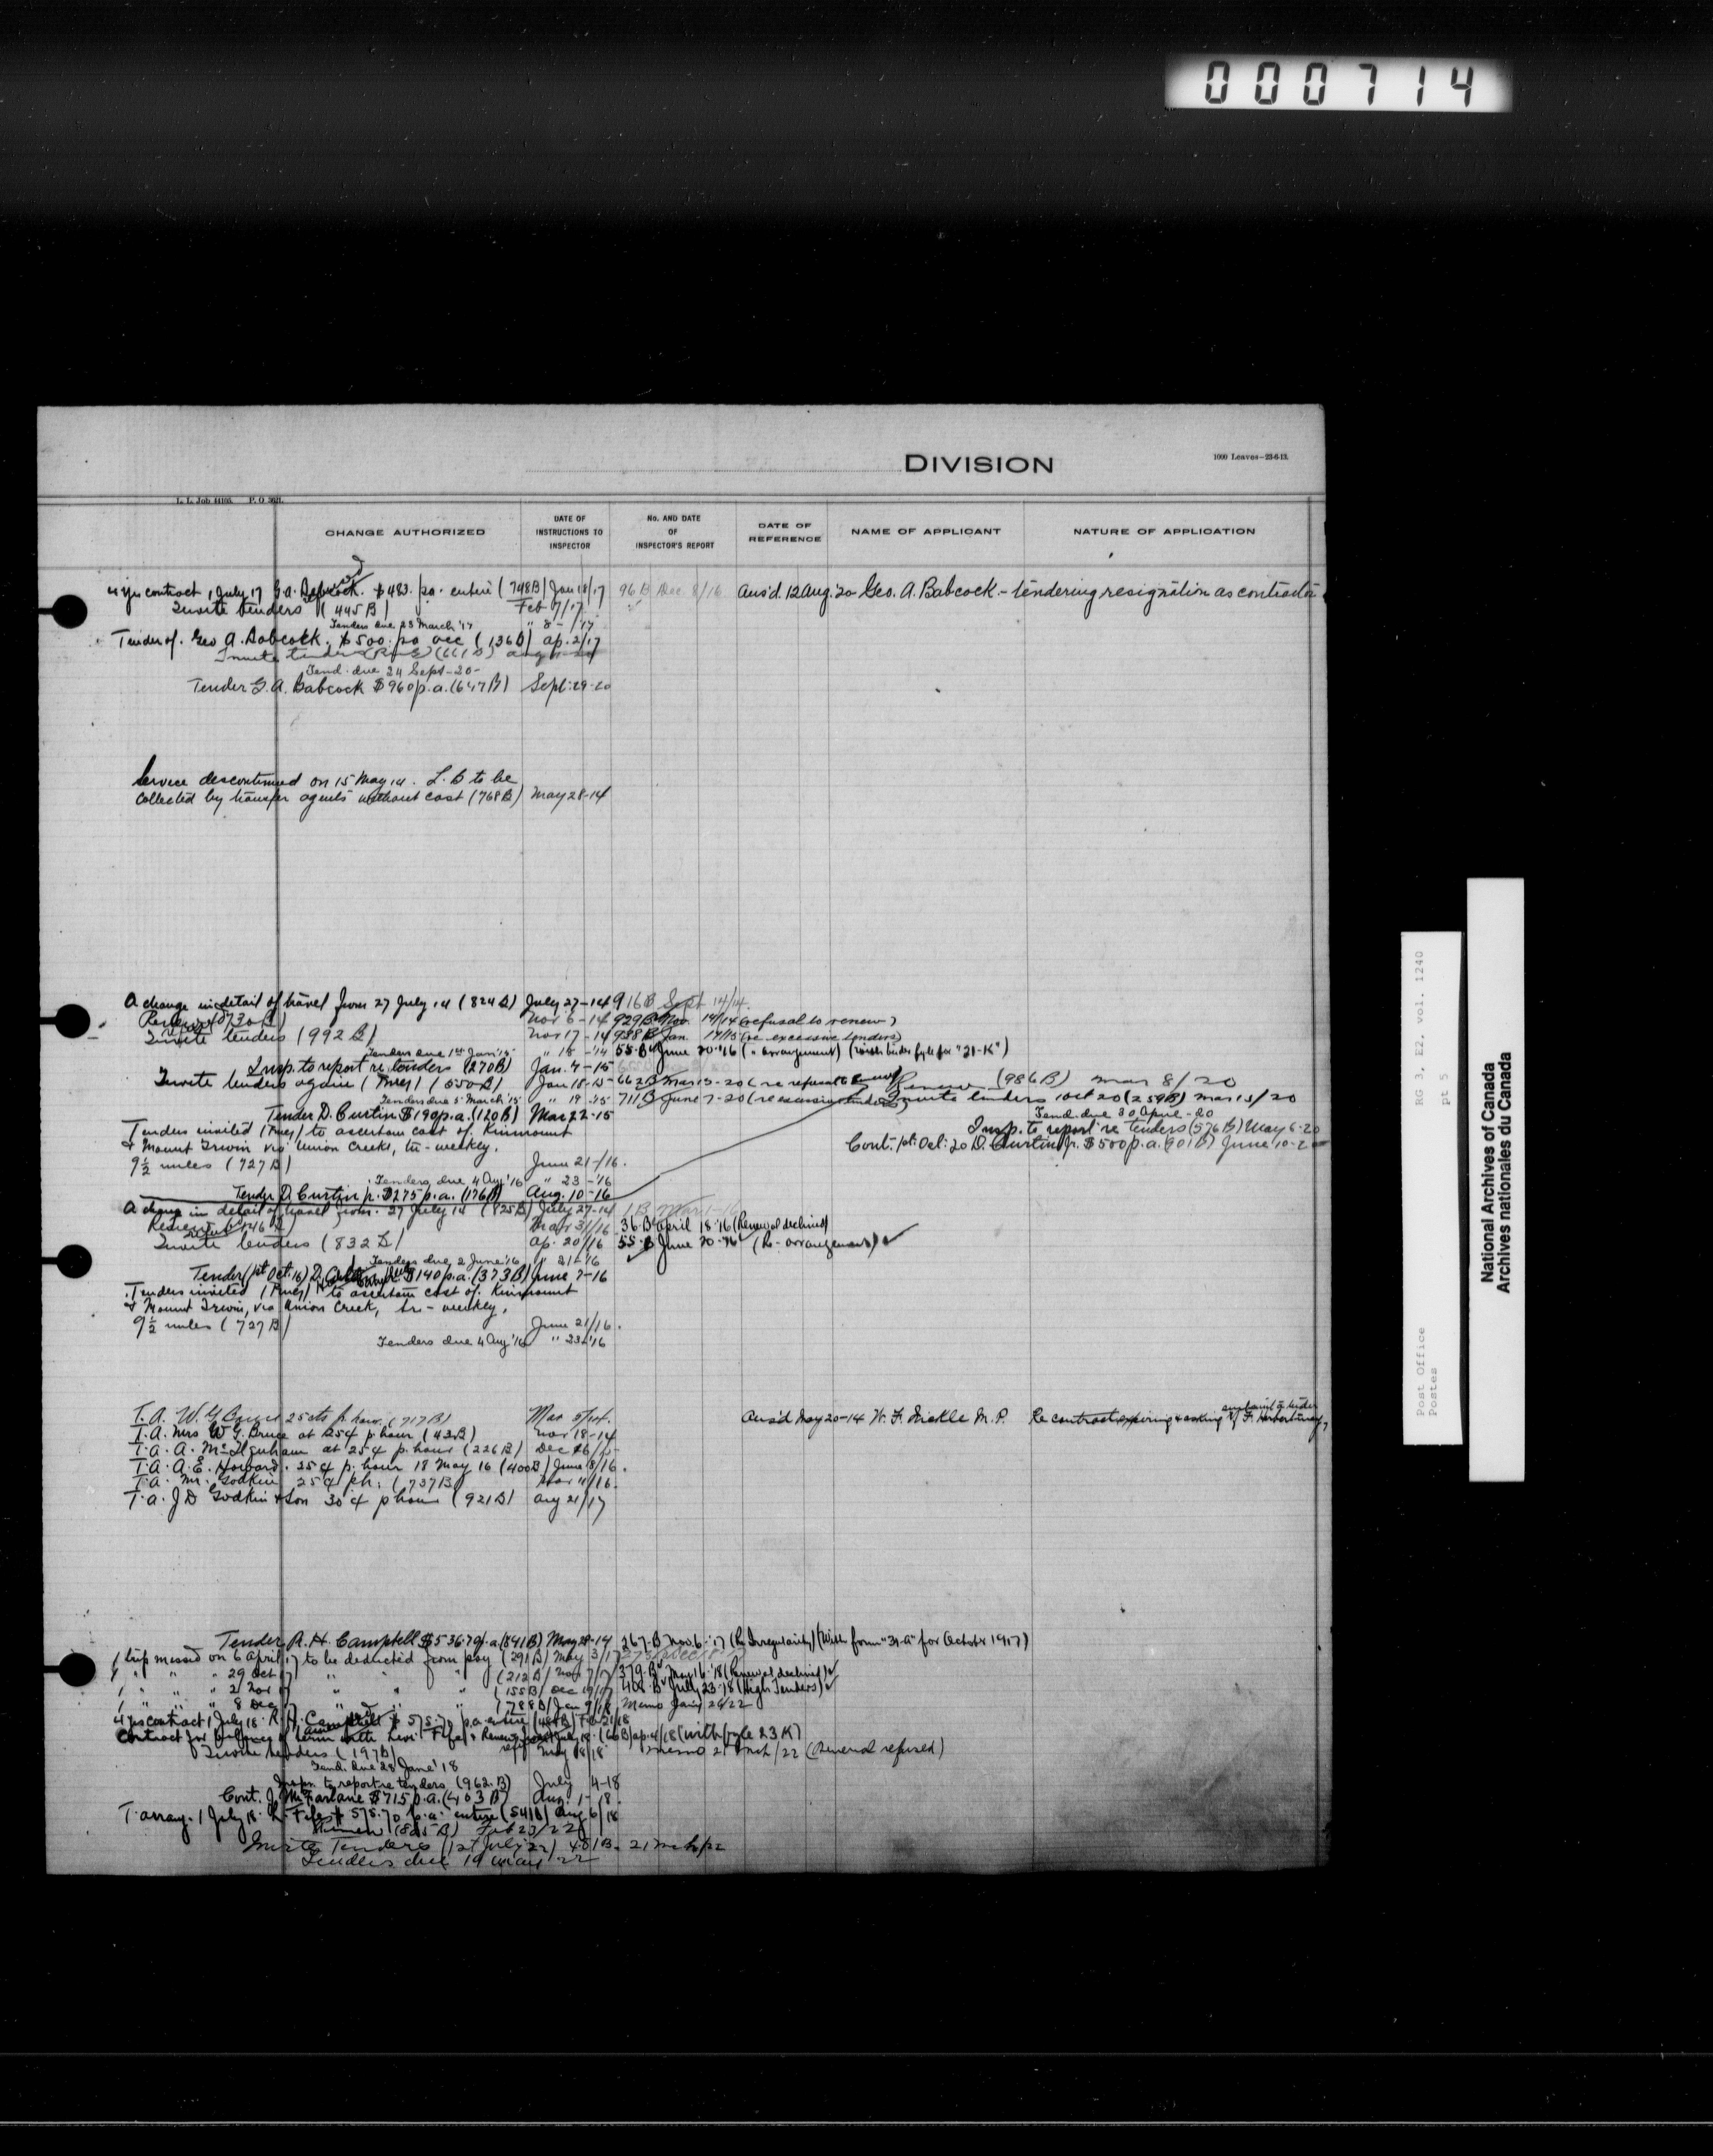 000714
DIVISION
1000 Leaves-23-6-13.
L. L. Job 44103. P. O 5621.
CHANGE AUTHORIZED
DATE OF INSTRUCTIONS TO INSPECTOR
No. AND DATE OF INSPECTOR'S REPORT
DATE OF REFERENCE
NAME OF APPLICANT
NATURE OF APPLICATION
4 yrs contract 1 July 17 G. A. Babcock. $483. pa. entire (748B) Jan 18/17 96 B Dec 8/16 Ans'd. 12 Aug. '20 Geo. A. Babcock - tendering resignation as contractor
Invite tenders (445 B) Feb 7/17
Tenders due 23 March '17 " 8 - /17
Tender of. Geo A. Babcock. $500. pa acc (136B) ap. 2/17
Invite tenders
Tend. due 24 Sept-20-
Tender G. A. Babcock $960 p.a. (647B) Sept. 29-20
Service discontinued on 15 May 14. L. B to be
collected by transfer agents without cost (768B) May 28-14
A change in detail of travel from 27 July 14 (824B) July 27-14 916B Sept 14/14.
Nov 6-14 929B Nov. 14/14 (refusal to renew)
Invite tenders (992 B) Nov 17-14 938B Jan. 14/15 (re excessive tenders)
Tenders due 1st Jan '15 " 18 -'14 55-B June 20-'16 (" arrangement)
Insp. to report re tenders (270B) Jan. 7-15
Invite tenders again (550B) Jan 18-15 662B Mar 15-20 (re refusal to renew) Renew (986B) Mar 8/20
Tenders due 5 March '15 " 19-'15 711B June 7-20 (re excessive tenders) Invite tenders 1 Oct 20 (259B) Mar 15/20
Tender D. Curtin $190 p.a. (120B) Mar 22-15 Tend. due 30 April-20
Tenders invited to ascertain cost of Kinmount Insp. to report re tenders (576B) May 6-20
& Mount Irwin via Union Creek, tri-weekly. Cont. 1st Oct. 20 D. Curtin Jr. $500 p.a. (901B) June 10-20
9½ miles (727B) June 21-/16.
Tenders due 4 Aug '16 " 23-'16
Tender D. Curtin Jr. $275 p.a. (176B) Aug. 10-16
A change in detail of travel from. 27 July 14 (825B) July 27-14
Mar 31/16 36-B April 18-'16 (Renewal declined)
Invite tenders (832 B) ap. 20/16 55-B June 20-'16 (Re-arrangement)
Tenders due 2 June '16 " 21-'16
Tender (1st Oct. 16) $140 p.a. (373B) June 7-16
Tenders invited to ascertain cost of. Kinmount
& Mount Irwin, via Union Creek, tri-weekly.
9½ miles (727B) June 21/16.
Tenders due 4 Aug '16 " 23-'16
T. A. W. G. Bruce 25cts p hour (717B) Mar 5/14. Ans'd May 20-14 W. F. Nickle M. P. Re contract expiring & asking
T. A. Mrs W. G. Bruce at 25¢ p hour (42B) Nov 18-14
T. A. A. McIlquham at 25¢ p. hour (226B) Dec
T. A. A. E. Howard. 25¢ p. hour 18 May 16 (400B) June 8/16.
T. A. Mr. Godkin 25¢ ph. (737B) 11/16.
T. A. J D Godkin & Son 30¢ p hour (921B) Aug 21/17
Tender R. H. Campbell $536.79 p.a. (841B) May 28-14 267-B Nov. 6-'17 (Re Irregularity) (With form "31-a" for October 1917)
1 trip missed on 6 April 17 to be deducted from pay (291B) May 3/17
1 " " " 29 Oct 17 " " " (212B) Nov 7/17 379-B May 16-'18 (Renewal declined)
1 " " " 2 Nov 17 " " " (155B) Dec 19/17 408-B July 23-'18 (High Tenders)
1 " " " 8 Dec 17 " " " (788B) Jan 9/18 Memo Jany 26/22
4 yrs contract 1 July 18. R. H. Campbell $575.70 p.a. entire (484B) Feb 21/18
Contract for balance of term with Levi Fife ap. 4/18 (with fyle 23 K)
Invite tenders (197B) May 18/18 Memo 21 Mch/22 (Renewal refused)
Tend. Due 28 June '18
Inspr. to report re tenders (962.B) July 4-18
Cont. J. McFarlane $715 p.a. (403B) Aug. 1-18.
T. array. 1 July 18. L. Fife $575.70 p.a. entire (541B) Aug 6/18
Renew (865B) Feb 23/22
Invite Tenders (1st July 22) 481B. 21 Mch/22
Tenders due 19 May 22
Post Office
Postes
RG 3, E2, vol. 1240
pt 5
National Archives of Canada
Archives nationales du Canada